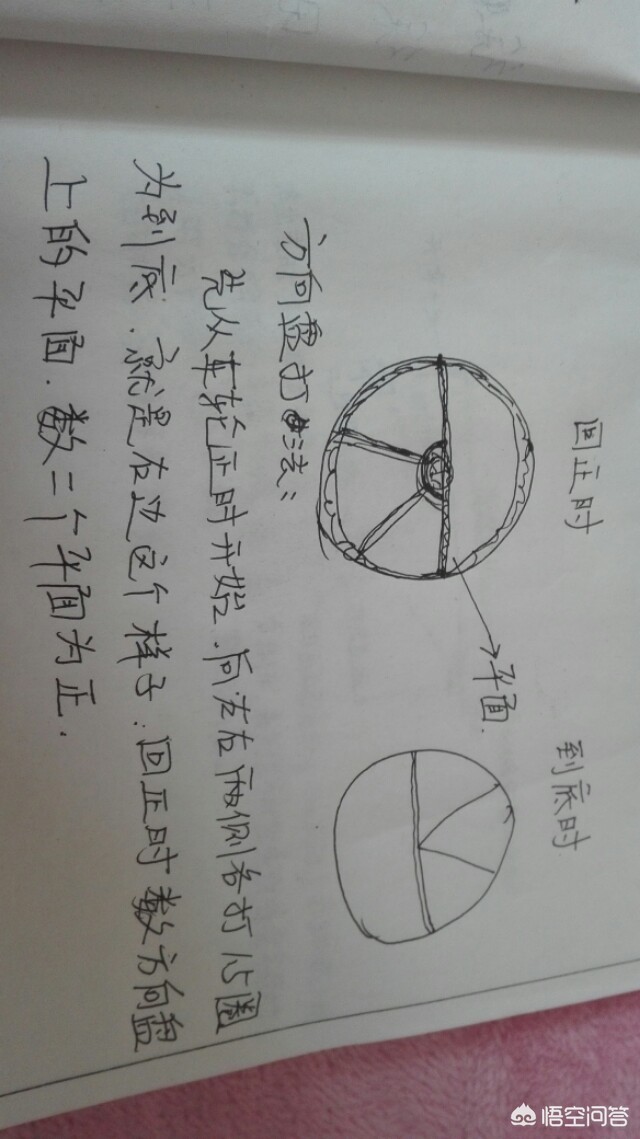 回正时
到底时
平面
方向盘打法:
先从车轮正时开始.向左右两侧各打1.5圈
为到底.就是右边这个样子.回正时数方向盘
上的平面.数二个平面为正.
悟空问答